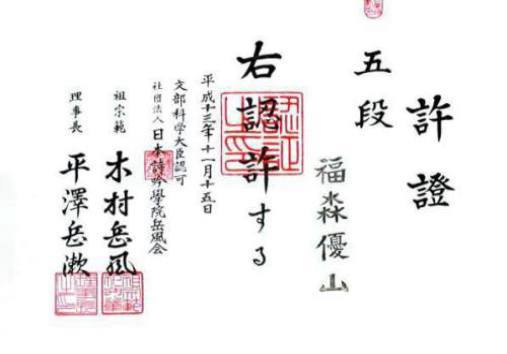 許證
五段
福森優山
右認許する
平成十三年十一月十五日
文部科学大臣認可
社団法人日本詩吟學院岳風会
祖宗範 木村岳風
理事長 平澤岳漱